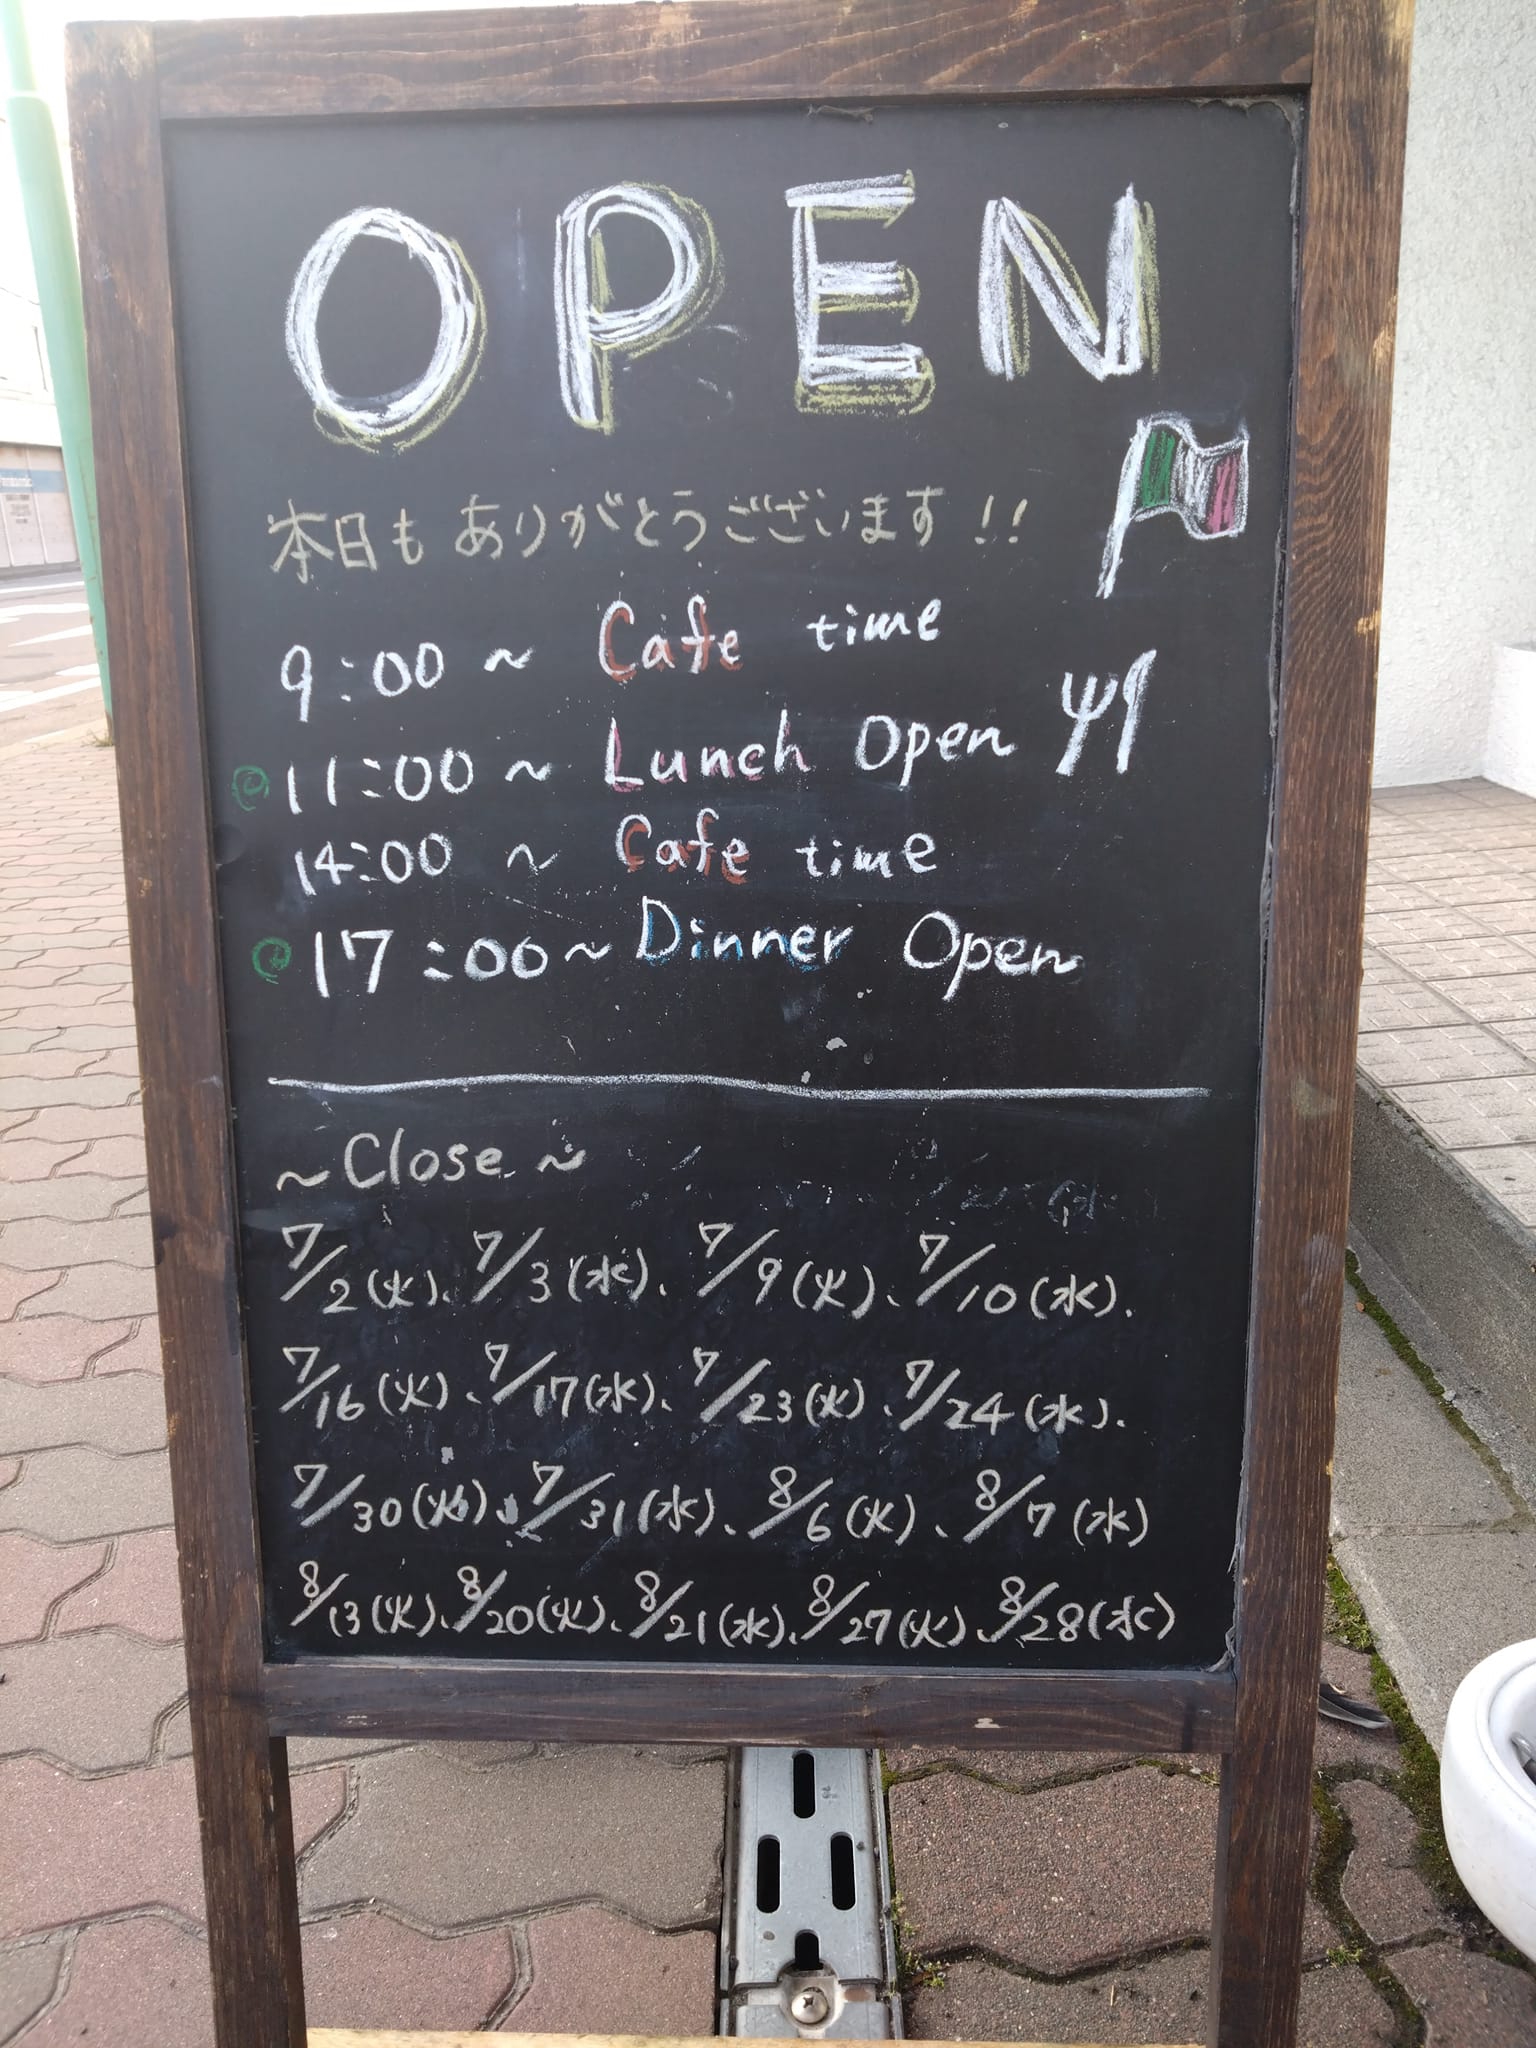 OPEN
本日も ありがとうございます!!
9:00 ~ Cafe time
11:00 ~ Lunch Open
14:00 ~ Cafe time
17:00~ Dinner Open
~Close~
7/2(火)、7/3(水)、7/9(火)、7/10(水).
7/16(火)、7/17(水)、7/23(火)、7/24(水).
7/30(火)、7/31(水)、8/6(火)、8/7(水)
8/13(火)、8/20(火)、8/21(水)、8/27(火)、8/28(水)